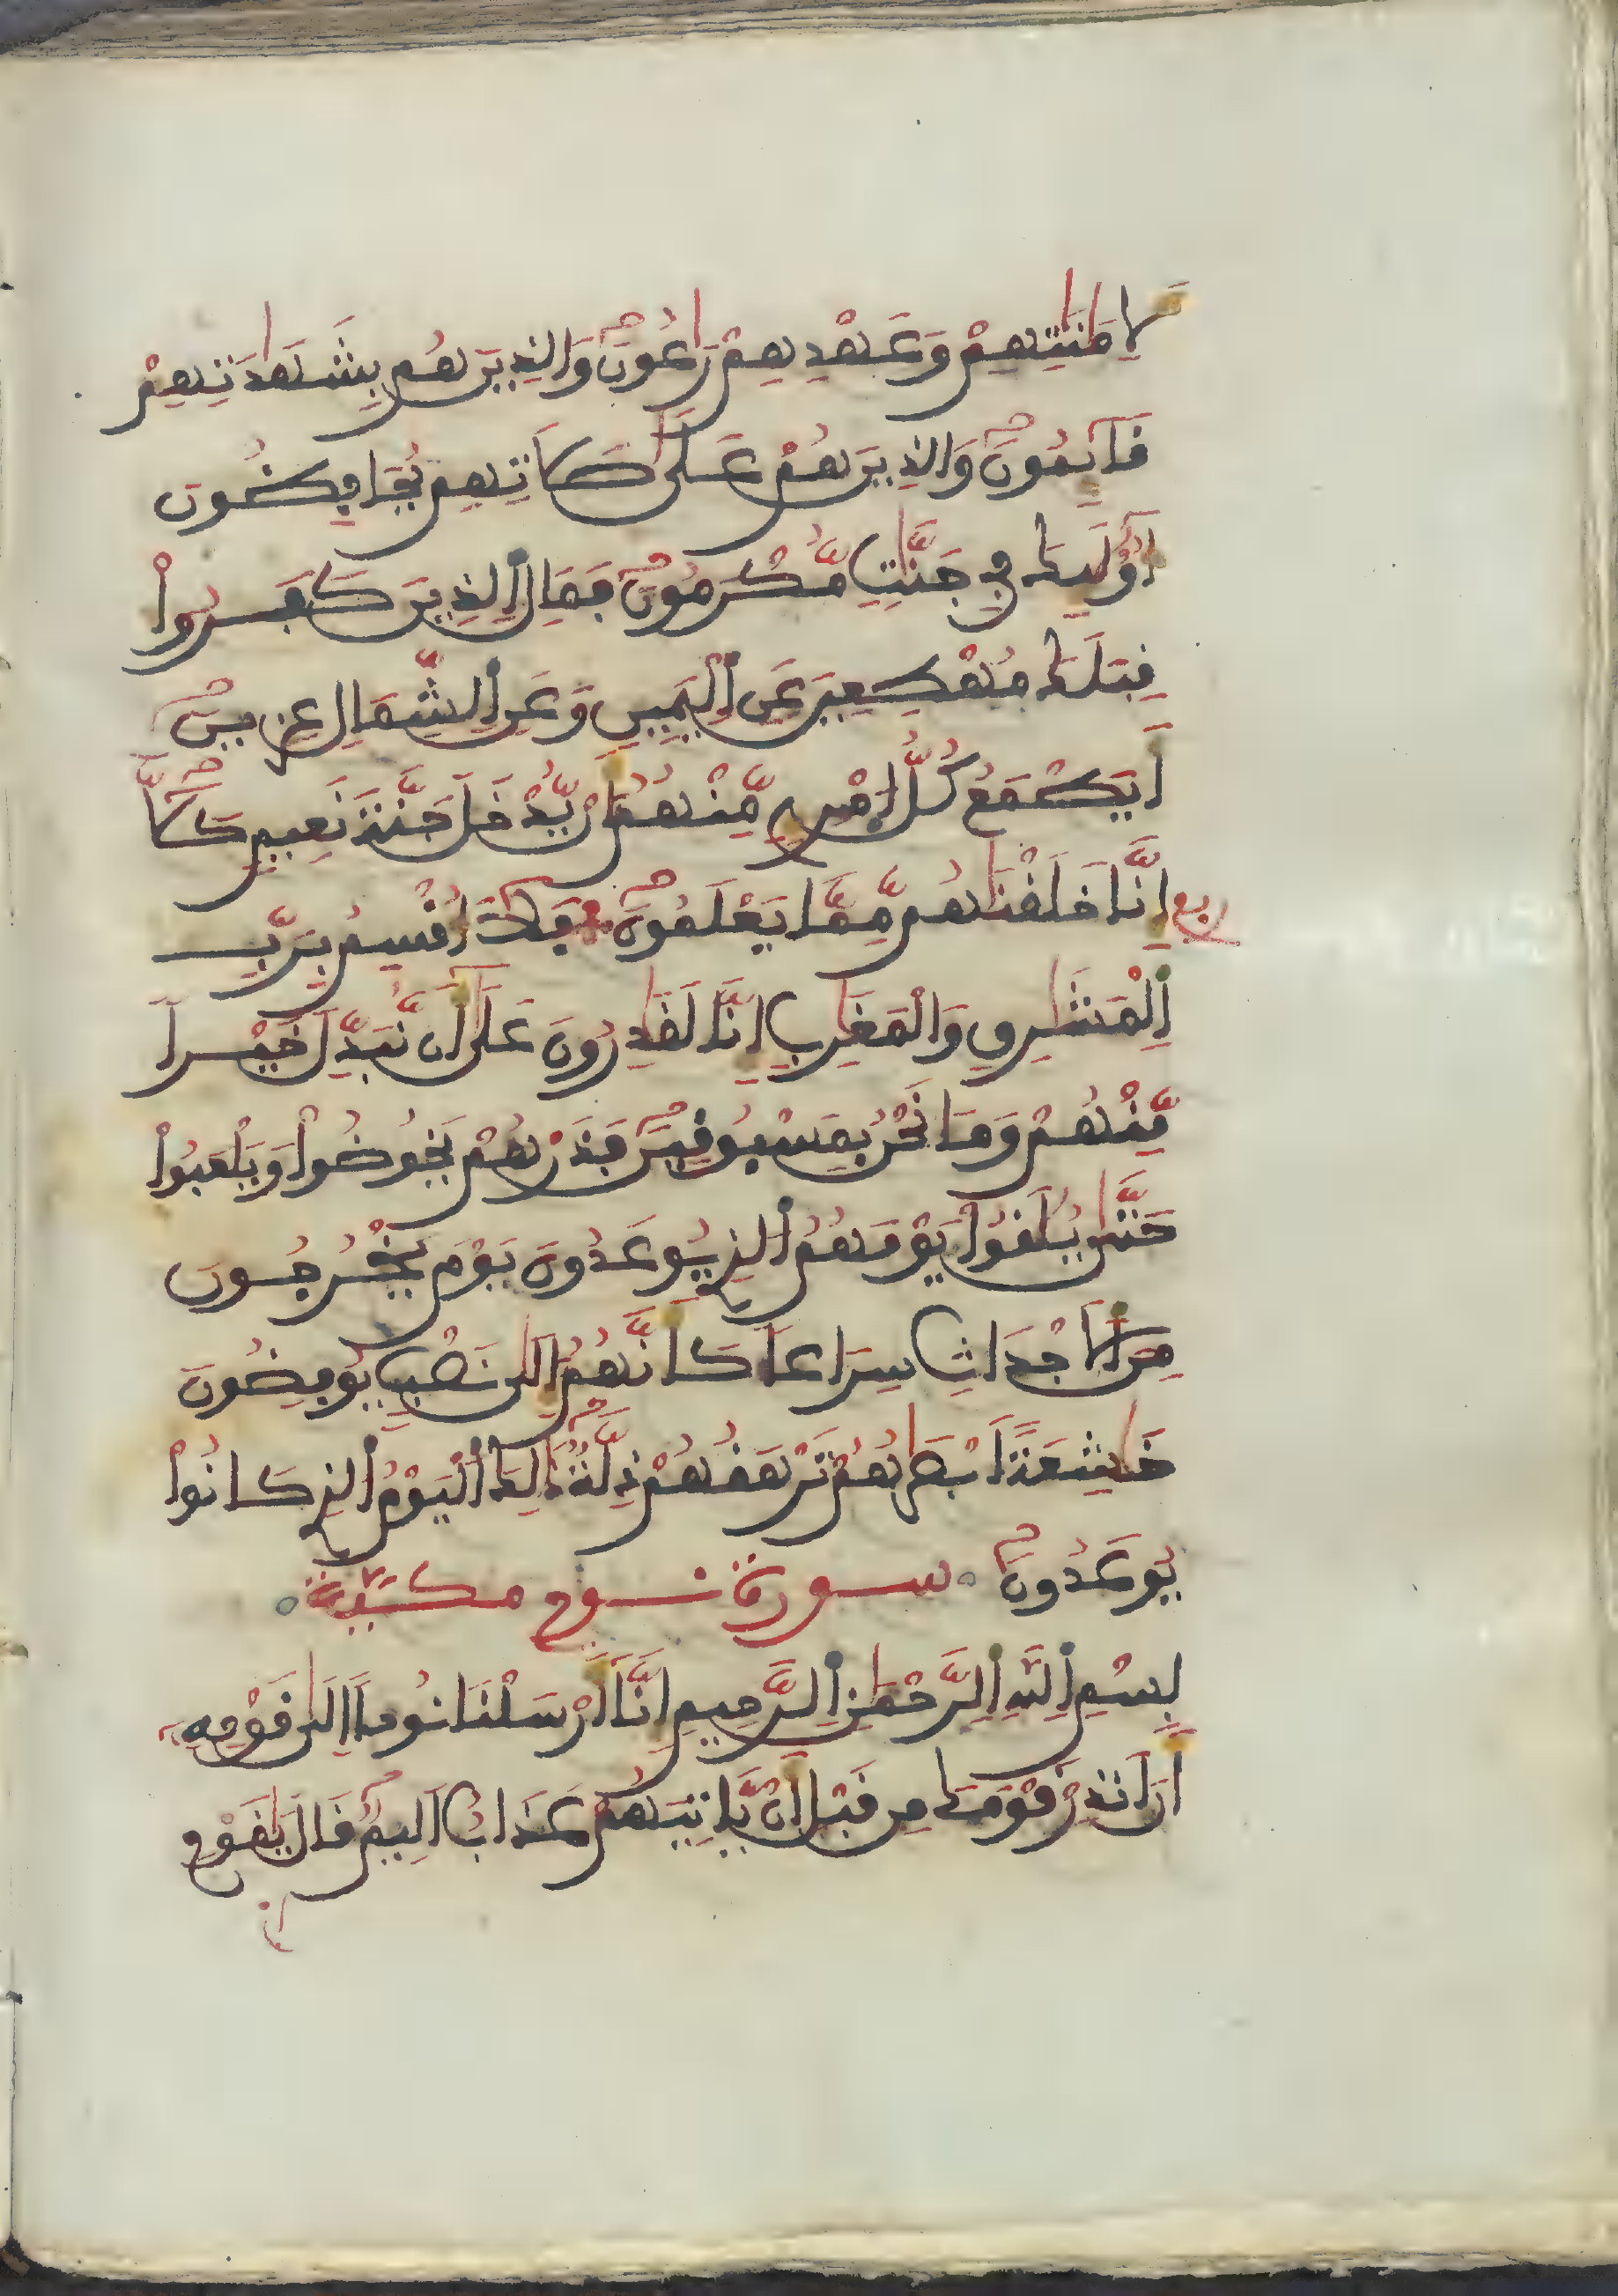 لِأَمَٰنَٰتِهِمْ وَعَهْدِهِمْ رَٰعُونَ وَالذِينَ هُم بِشَهَٰدَتِهِمْ
قَآئِمُونَ وَالذِينَ هُمْ عَلَىٰ صَلَاتِهِمْ يُحَافِظُونَ
أُوْلَٰئِكَ فِي جَنَّٰتٍ مُّكْرَمُونَ فَمَالِ الذِينَ كَفَرُواْ
قِبَلَكَ مُهْطِعِينَ عَنِ الْيَمِينِ وَعَنِ الشِّمَالِ عِزِينَ
أَيَطْمَعُ كُلُّ امْرِئٍ مِّنْهُمُ أَنْ يُّدْخَلَ جَنَّةَ نَعِيمٍ كَلَّا
إِنَّا خَلَقْنَٰهُم مِّمَّا يَعْلَمُونَ فَلَا أُقْسِمُ بِرَبِّ
ربع
الْمَشَٰرِقِ وَالْمَغَٰرِبِ إِنَّا لَقَٰدِرُونَ عَلَىٰ أَن نُّبَدِّلَ خَيْراً
مِّنْهُمْ وَمَا نَحْنُ بِمَسْبُوقِينَ فَذَرْهُمْ يَخُوضُواْ وَيَلْعَبُواْ
حَتَّىٰ يُلَٰقُواْ يَوْمَهُمُ الذِي يُوعَدُونَ يَوْمَ يَخْرُجُونَ
مِنَ الْأَجْدَاثِ سِرَاعاً كَأَنَّهُمُ إِلَىٰ نَصْبٍ يُوفِضُونَ
خَٰشِعَةً أَبْصَٰرُهُمْ تَرْهَقُهُمْ ذِلَّةٌ ذَٰلِكَ الْيَوْمُ الذِي كَانُواْ
يُوعَدُونَ سورة نوح مكية
بِسْمِ اللَّهِ الرَّحْمَٰنِ الرَّحِيمِ إِنَّا أَرْسَلْنَا نُوحاً إِلَىٰ قَوْمِهِ
أَنَ انذِرْ قَوْمَكَ مِن قَبْلِ أَنْ يَّاتِيَهُمْ عَذَابٌ أَلِيمٌ قَالَ يَٰقَوْمِ